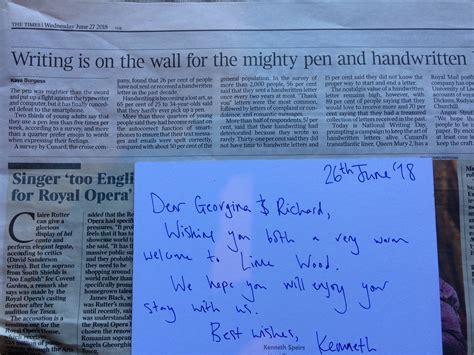 THE TIMES | Wednesday June 27 2018
Writing is on the wall for the mighty pen and handwritten
Kaya Burgess
The pen was mightier than the sword
and put up a fight against the typewriter
and computer, but it has finally conced-
ed defeat to the smartphone.
Two thirds of young adults say that
they use a pen less than five times per
week, according to a survey, and more
than a quarter prefer emojis to words
when expressing their feelings.
A survey by Cunard, the cruise com-
pany, found that 26 per cent of people
have not sent or received a handwritten
letter in the past decade.
Handwriting is becoming a lost art, as
65 per cent of 25 to 34-year-olds said
that they hardly ever pick up a pen.
More than three quarters of young
people said they had become reliant on
the autocorrect function of smart-
phones to ensure that their text messa-
ges and emails were spelt correctly,
compared with about 50 per cent of the
general population. In the survey of
more than 2,000 people, 56 per cent
said that they sent a handwritten letter
once every two years at most. "Thank
you" letters were the most common,
followed by letters of complaint or con-
dolence, and romantic messages.
More than half of respondents, 57 per
cent, said that their handwriting had
deteriorated because they wrote so
rarely. Thirty per cent said they did not
have time to handwrite letters and
15 per cent said they did not know the
proper way to start and end a letter.
The nostalgia value of a handwritten
letter remains high, however, with
89 per cent of people saying that they
would love to receive more and 70 per
cent saying that they had a treasured
collection of letters received in the past.
Today is National Writing Day,
prompting a campaign to keep the art of
handwritten letters alive. Cunard's
transatlantic liner, Queen Mary 2, has
Singer 'too Engli
for Royal Opera'
Claire Rutter
can give a
glorious
display of bel
canto and
perform elegant legato,
according to critics
(David Sanderson
writes). But the soprano
from South Shields is
"too English" for Covent
Garden, a remark she
says was made by the
Royal Opera's casting
director after she
auditioned for
Tosca.
The accusation is a
sensitive one for the
Royal Opera House,
added that the Royal
Opera had specific
pressures, that it was a
problem
she said, "It was
26th June '18
Dear Georgina & Richard,
Wishing you both a very warm
welcome to Lime Wood.
We hope you will enjoy your
stay with us.
Best wishes,
Kenneth
Kenneth Speirs